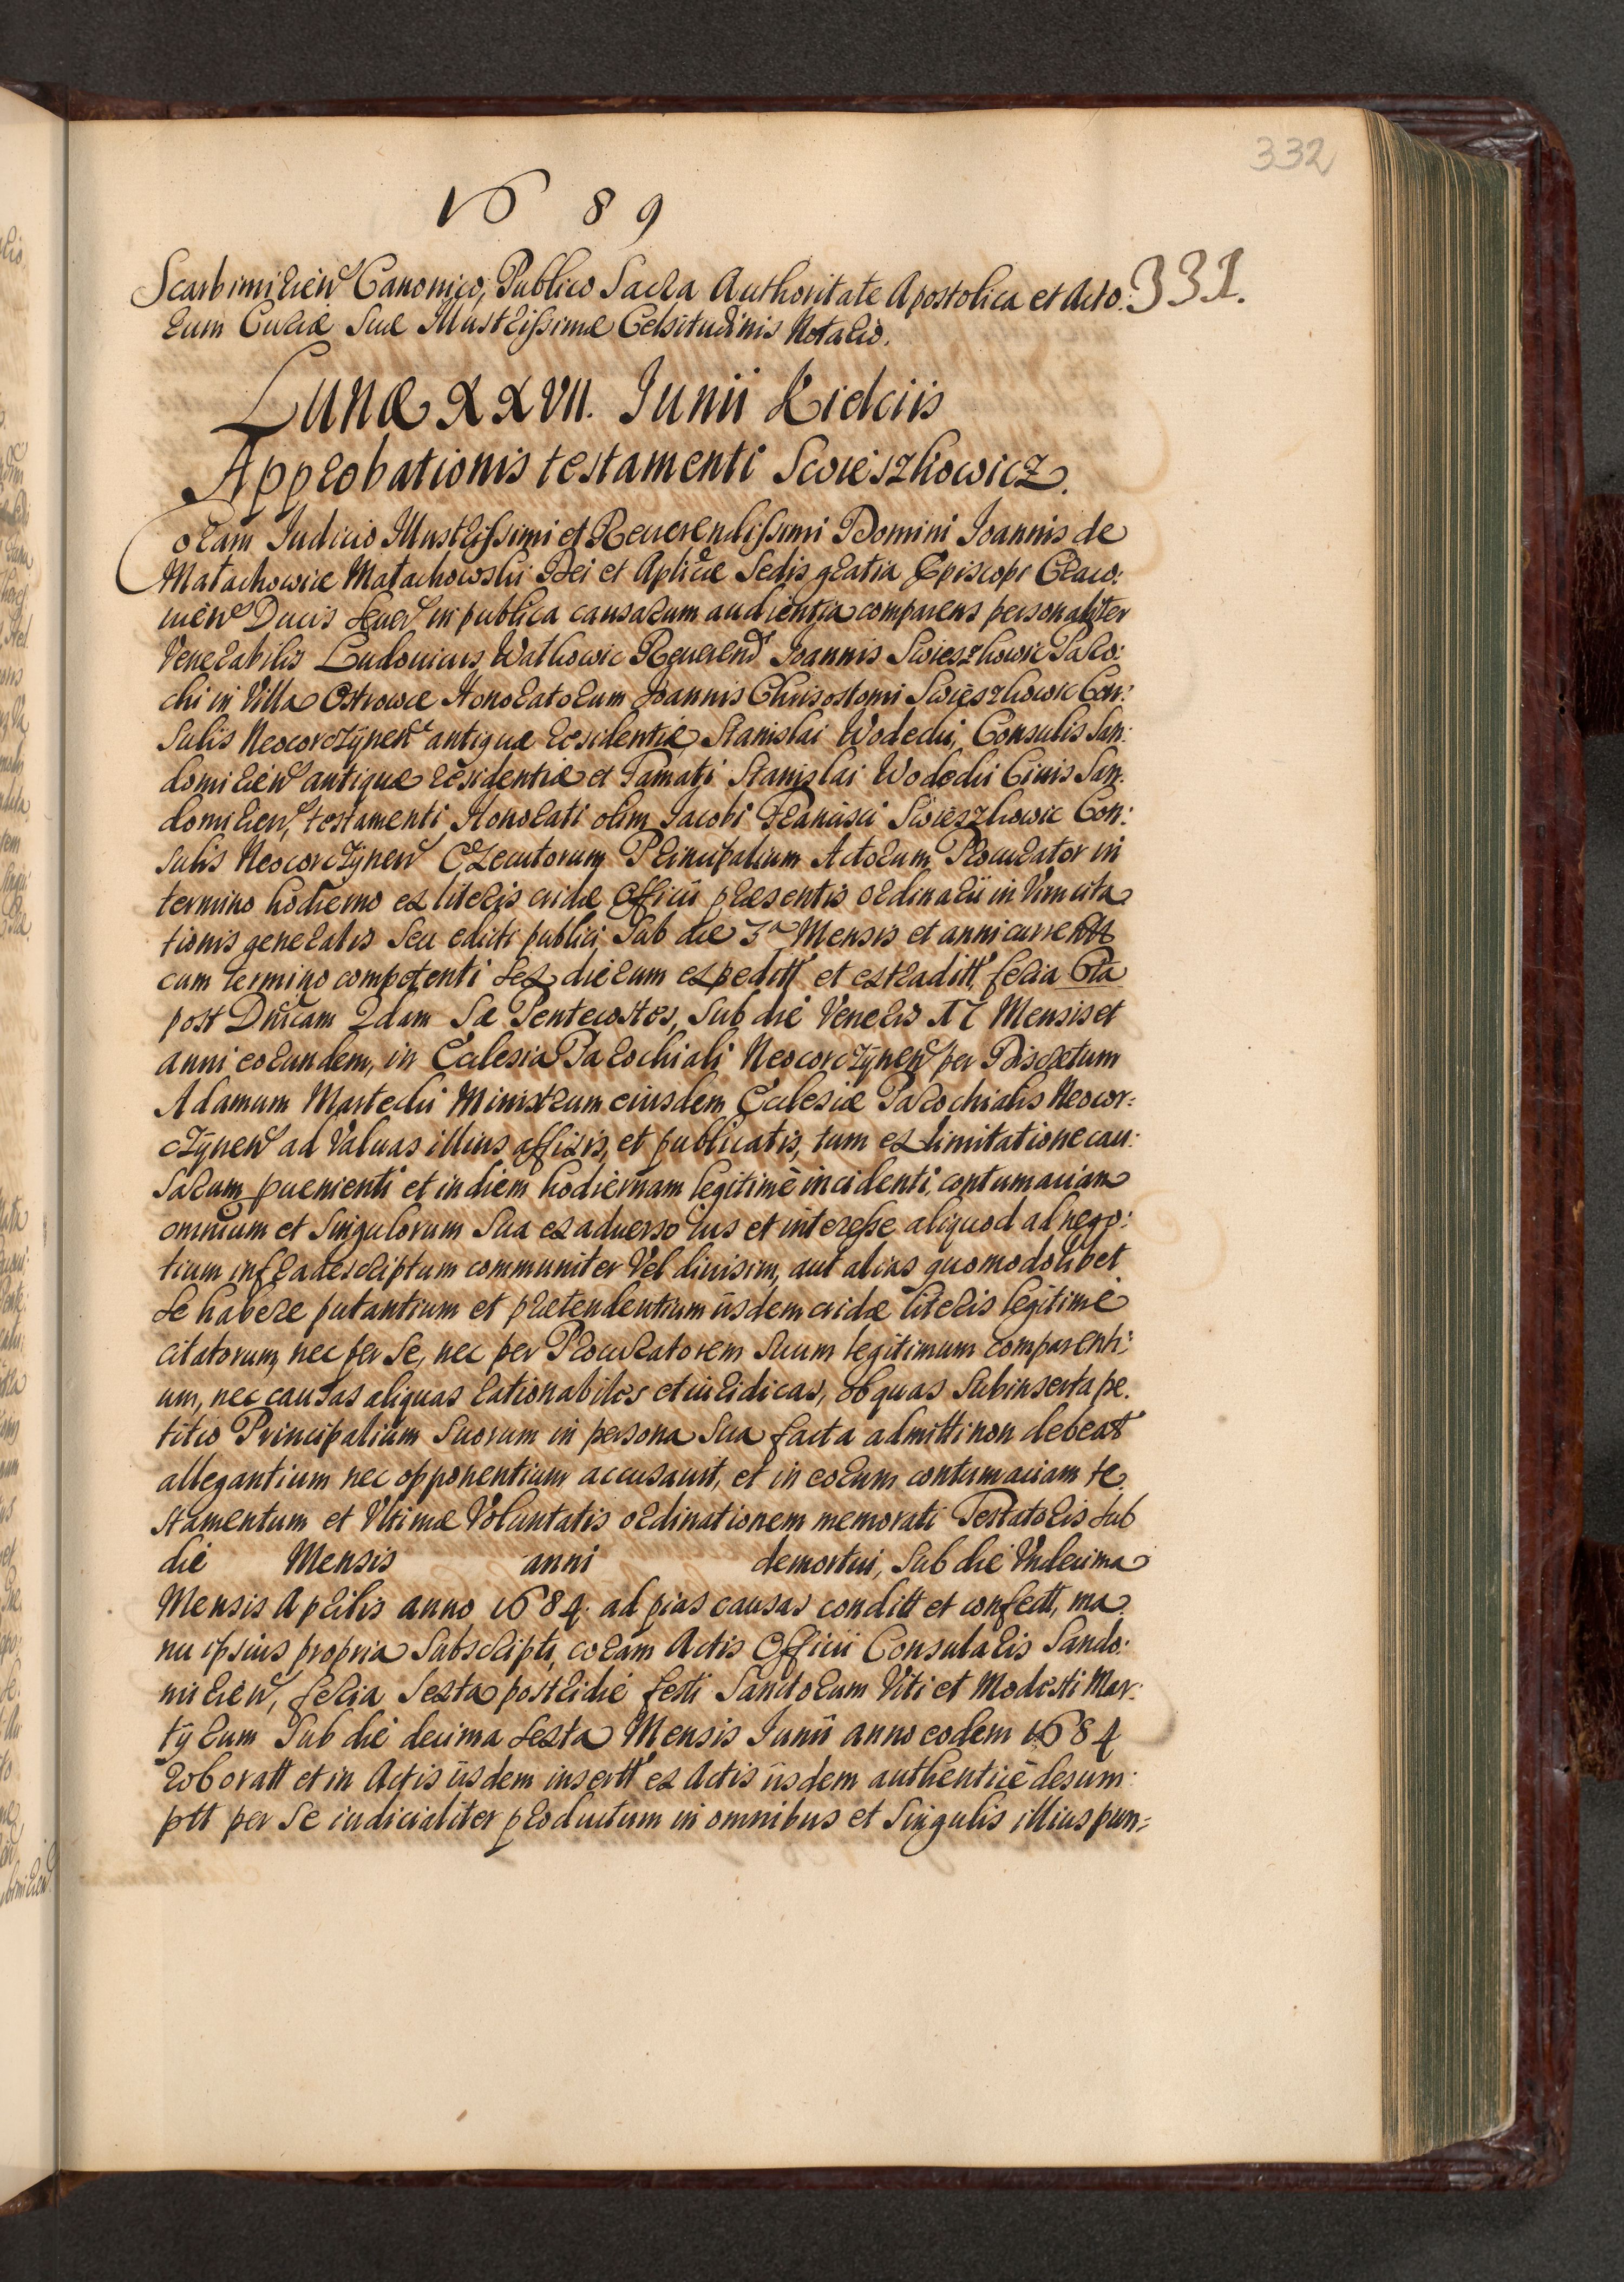 332
1689
Scarbimirien Canonico, Publico Sacra Authoritate Apostolica et Acto: 331.
rum Curiæ Suæ Illustrissimæ Celsitudinis Notario.
Lunæ XXVII. Junii Kielciis
Approbationis testamenti Swieszkowicz.
Coram Judicio Illustrissimi et Reuerendissimi Domini Joannis de
Małachowice Małachowski Dei et Aplicæ Sedis gratia Episcopi Craco:
uien Ducis Seuer in publica causarum audientia comparens personaliter
Venerabilis Ludouicus Watkowic Reuerend Joannis Swieszkowic Paro:
chi in Villa Ostrowce Honoratorum Joannis Chrisostomi Swieszkowic Con:
sulis Neocorczynen antiquæ residentiæ, Stanislai Wodecki, Consulis San:
domirien antiquæ residentiæ et Famati Stanislai Wodecki Ciuis San:
domirien, testamenti Honorati olim Jacobi Francisci Swieszkowic Con:
sulis Neocorczynen Executorum Principalium Actorum Procurator in
termino hodierno ex literis cridæ Officii præsentis ordinarii in Vim cita
tionis generalis seu edicti publici, sub die 3a Mensis et anni currentt
cum termino competenti sex dierum expeditt et extraditt, feria 6ta
post Dnicam 2dam Sæ Pentecostes, sub die Veneris 17 Mensis et
anni eorundem, in Ecclesia Parochiali Neocorczynen per Discretum
Adamum Martecki Ministrum eiusdem Ecclesiæ Parochialis Neocor:
czynen ad Valuas illius affixis, et publicatis, tum ex limitatione cau:
sarum puenienti et in diem hodiernam legitimè incidenti, contumaciam
omnium et singulorum sua ex aduerso ius et interesse aliquod ad nego:
tium infradescriptum communiter Vel diuisim, aut alias quomodolibet
se habere putantium et prætendentium iisdem cridæ literis legitimè
citatorum, nec per se, nec per Procuratorem suum legitimum comparenti:
um, nec causas aliquas rationabiles et iuridicas, ob quas subinserta pe.
titio Principalium suorum in persona sua facta admitti non debeat
allegantium nec opponentium accusauit, et in eorum contumaciam te.
stamentum et Vltimæ Voluntatis ordinationem memorati Testatoris sub
die Mensis anni demortui, sub die Vndecima
Mensis Aprilis anno 1684. ad pias causas conditt et confectt, ma
nu ipsius propria subscripti, coram Actis Officii Consularis Sando:
mirien, feria sexta postridie festi Sanctorum Viti et Modesti Mar:
tyrum sub die decima sexta Mensis Junii anno eodem 1684
roboratt et in Actis iisdem insertt ex Actis iisdem authenticè desum:
ptt per se iudicialiter productum in omnibus et singulis illius pun: